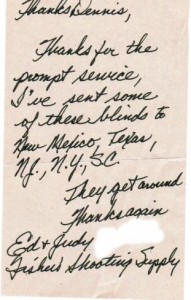 Thanks Dennis,
Thanks for the
prompt service,
I've sent some
of these blinds to
New Mexico, Texas,
NJ., N.Y., SC.
They get around
Thanks again
Ed & Judy
Fisher's Shooting Supply